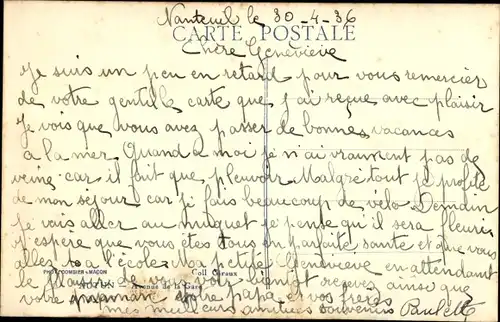 Nanteuil le 30-4-36
CARTE POSTALE
Chère Geneviève
Je suis un peu en retard pour vous remercier
de votre gentille carte que j'ai reçue avec plaisir
Je vois que vous avez passer de bonnes vacances
a la mer. Quand a moi je n'ai vraiment pas de
veine car il fait que pleuvoir. Malgré tout je profite
de mon séjour car je fais beaucoup de vélo. Demain
je vais aller au muguet je pense qu'il sera fleuri
J'espère que vous êtes tous en parfaite santé et que vous
allez à l'école. Ma petite Geneviève en attendant
PHOT. COMBIER MACON Coll. Caraux
le plaisir de vous voir bientôt recevez ainsi que
Avenue de la Gare
votre maman votre papa et vos frères
mes meilleurs amitiés souvenirs Paulette